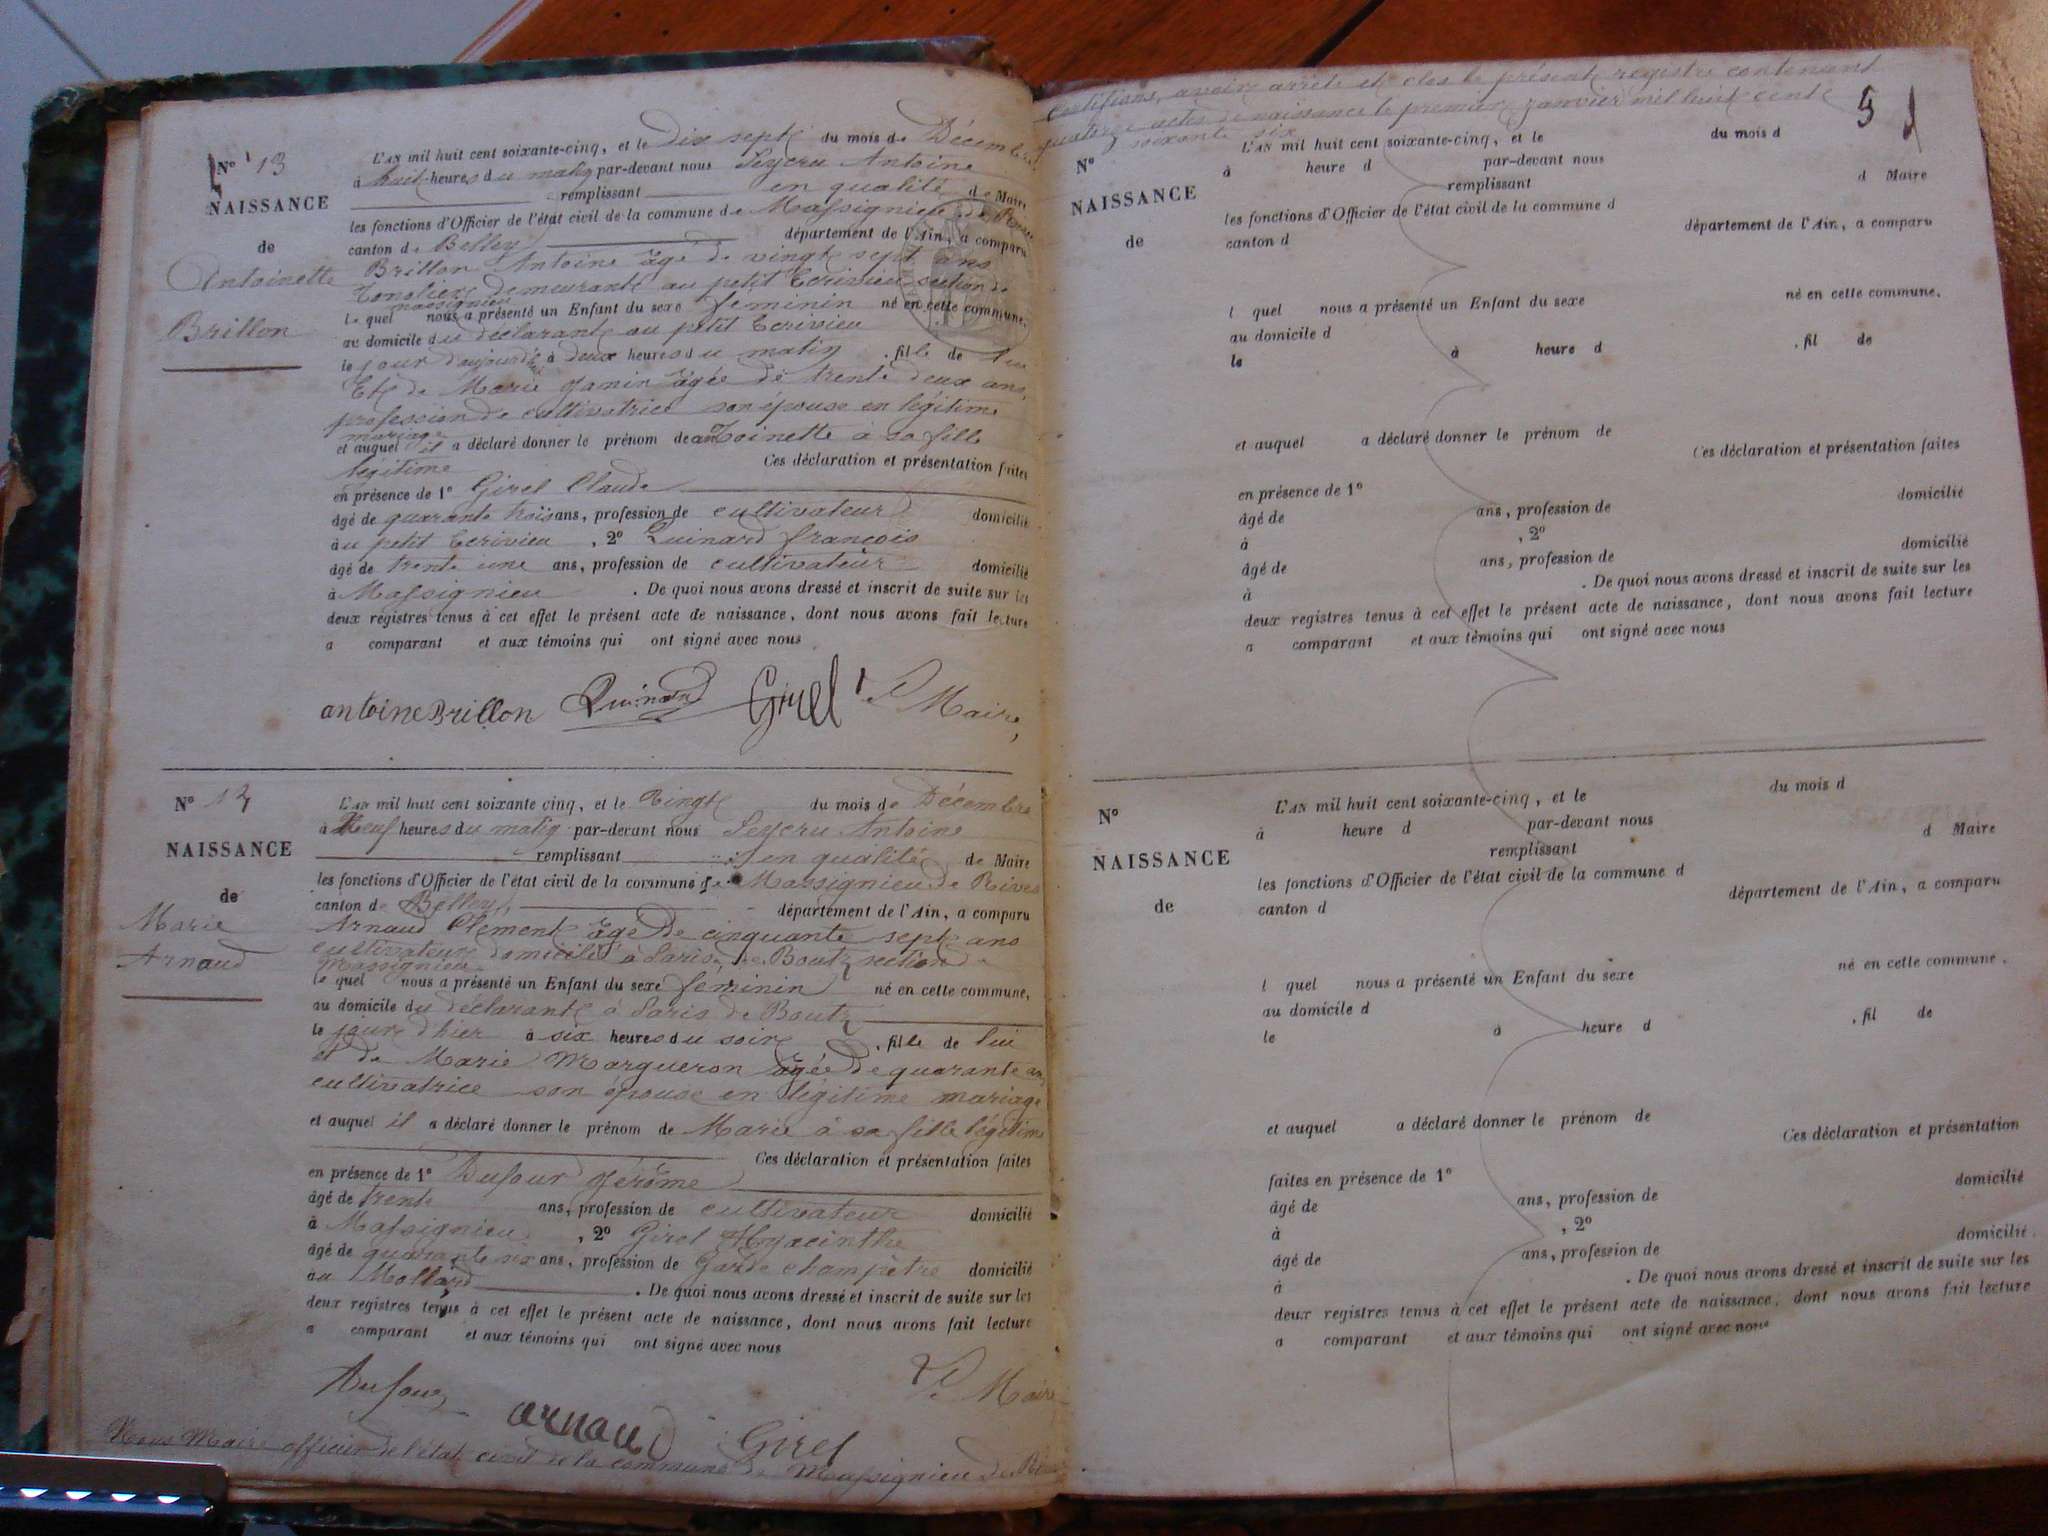 N° 13
NAISSANCE
de
Antoinette
Brillon
L'AN mil huit cent soixante-cinq, et le dix sept du mois de Décembre
à huit heures du matin par-devant nous Seyeru Antoine
remplissant en qualité de Maire
les fonctions d'Officier de l'état civil de la commune de Massignieu de Rives
canton de Belley département de l'Ain, a comparu
Brillon Antoine âgé de vingt sept ans
Tonolier demeurant au petit Ecrivieu section de
massignieu
le quel nous a présenté un Enfant du sexe feminin né en cette commune,
au domicile du déclarant au petit Ecrivieu
le jour d'aujourd'hui à deux heures du matin , fille de lui
Et de Marie Janin âgée de trente deux ans,
profession de cultivatrice son épouse en légitime
mariage
et auquel il a déclaré donner le prénom de antoinette à sa fille
légitime Ces déclaration et présentation faites
en présence de 1° Girel Claude
âgé de quarante trois ans, profession de cultivateur domicilié
au petit Ecrivieu , 2° Quinard françois
âgé de trente une ans, profession de cultivateur domicilié
à Massignieu . De quoi nous avons dressé et inscrit de suite sur les
deux registres tenus à cet effet le présent acte de naissance, dont nous avons fait lecture
a comparant et aux témoins qui ont signé avec nous
antoine Brillon Quinard Girel Le Maire,
N° 14
NAISSANCE
de
Marie
Arnaud
L'AN mil huit cent soixante cinq, et le Vingt du mois de Décembre
à Neuf heures du matin par-devant nous Seyeru Antoine
remplissant en qualité de Maire
les fonctions d'Officier de l'état civil de la commune de Massignieu de Rives
canton de Belley, département de l'Ain, a comparu
Arnaud Clément âgé de cinquante sept ans
cultivateur domicilié à Paris de Boutz section de
Massignieu
le quel nous a présenté un Enfant du sexe féminin né en cette commune,
au domicile du déclarant à Paris de Boutz
le jour d'hier à six heures du soir , fille de lui
et de Marie Margueron âgée de quarante ans
cultivatrice son épouse en légitime mariage
et auquel il a déclaré donner le prénom de Marie à sa fille légitime
Ces déclaration et présentation faites
en présence de 1° Dufour Jérôme
âgé de trente ans, profession de cultivateur domicilié
à Massignieu , 2° Girel Hyacinthe
âgé de quarante six ans, profession de Garde champetre domicilié
au Mollard . De quoi nous avons dressé et inscrit de suite sur les
deux registres tenus à cet effet le présent acte de naissance, dont nous avons fait lecture
a comparant et aux témoins qui ont signé avec nous
Dufour arnaud Girel Le Maire
Nous Maire officier de l'état civil de la commune de Massignieu de Rives
Certifions, avoir arrêté et clos le présent registre contenant
quatorze actes de naissance le premier janvier mil huit cent
soixante six
5
N°
NAISSANCE
de
L'AN mil huit cent soixante-cinq, et le du mois d
à heure d par-devant nous
remplissant d Maire
les fonctions d'Officier de l'état civil de la commune d
canton d département de l'Ain, a comparu
l quel nous a présenté un Enfant du sexe né en cette commune.
au domicile d
le à heure d , fil de
et auquel a déclaré donner le prénom de
Ces déclaration et présentation faites
en présence de 1°
âgé de ans, profession de domicilié
à , 2°
âgé de ans, profession de domicilié
à . De quoi nous avons dressé et inscrit de suite sur les
deux registres tenus à cet effet le présent acte de naissance, dont nous avons fait lecture
a comparant et aux témoins qui ont signé avec nous
N°
NAISSANCE
de
L'AN mil huit cent soixante-cinq, et le du mois d
à heure d par-devant nous
remplissant d Maire
les fonctions d'Officier de l'état civil de la commune d
canton d département de l'Ain, a comparu
l quel nous a présenté un Enfant du sexe né en cette commune.
au domicile d
le à heure d , fil de
et auquel a déclaré donner le prénom de
Ces déclaration et présentation
faites en présence de 1°
âgé de ans, profession de domicilié
à , 2°
âgé de ans, profession de domicilié
à . De quoi nous avons dressé et inscrit de suite sur les
deux registres tenus à cet effet le présent acte de naissance, dont nous avons fait lecture
a comparant et aux témoins qui ont signé avec nous